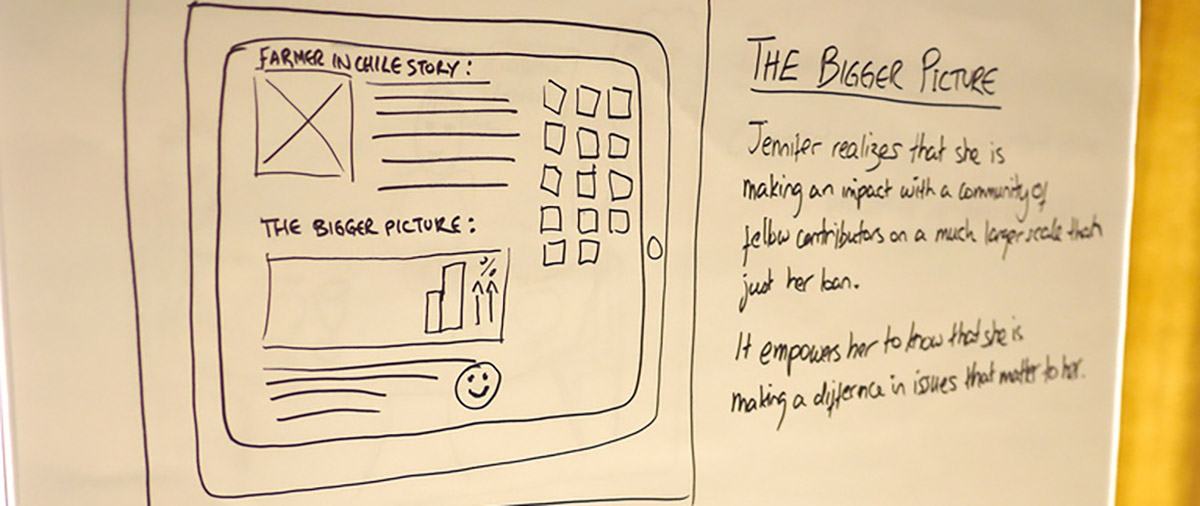 FARMER IN CHILE STORY:
THE BIGGER PICTURE:
%
THE BIGGER PICTURE
Jennifer realizes that she is
making an impact with a community of
fellow contributors on a much larger scale than
just her loan.
It empowers her to know that she is
making a difference in issues that matter to her.